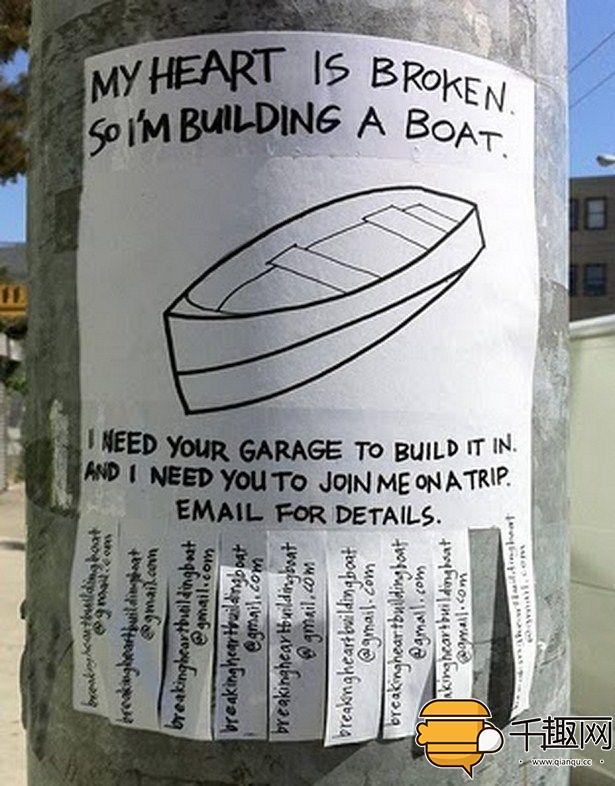 MY HEART IS BROKEN.
SO I'M BUILDING A BOAT.
I NEED YOUR GARAGE TO BUILD IT IN.
AND I NEED YOU TO JOIN ME ON A TRIP.
EMAIL FOR DETAILS.
breakingheartbuildingboat
@gmail.com
breakingheartbuildingboat
@gmail.com
breakingheartbuildingboat
@gmail.com
breakingheartbuildingboat
@gmail.com
breakingheartbuildingboat
@gmail.com
breakingheartbuildingboat
@gmail.com
breakingheartbuildingboat
@gmail.com
akingheartbuildingboat
@gmail.com
千趣网
www.qianqu.cc